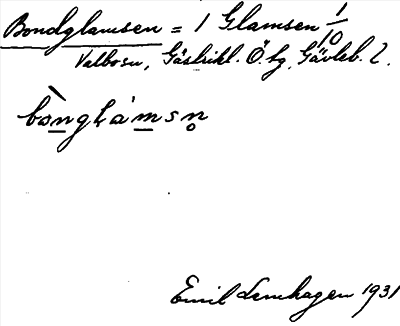 Bondglamsen = 1 Glamsen 1/10
Valbosn, Gästrikl. Ö tg. Gävleb. l.
bòngḷámsn̥
Emil Lenhagen 1931